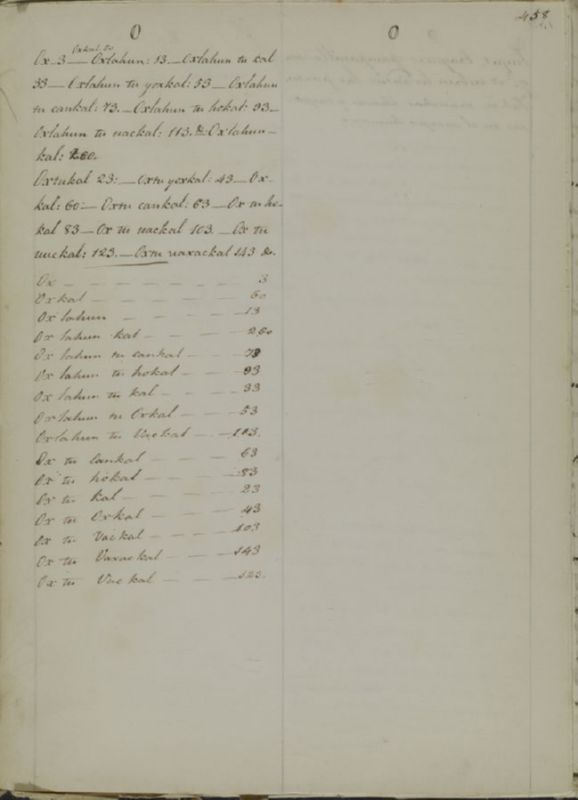 458
O
O
Oxkal, 60
Ox_3 _ Oxlahun: 13_ Oxlahun tu kal
33 _ Oxlahun tu yoxkal: 53 _ Oxlahun
tu cankal: 73._ Oxlahun tu hokal: 93_
Oxlahun tu uackal: 113. &c Oxlahun_
kal: 260.
Oxtukal 23: _ Oxtu yoxkal: 43 _ Ox-
kal: 60: _ Oxtu cankal: 63 _ Ox tu ho-
kal 83 _ Ox tu uackal 103. _ Ox tu
uuckal: 123. _ Oxtu uaxackal 143 &c.
Ox _ _ _ _ _ _ 3
Oxkal _ _ _ _ _ 60
Oxlahun _ _ _ _ 13
Ox lahun kal _ _ _ 260
Ox lahun tu cankal _ _ 73
Ox lahun tu hokal _ _ 93
Ox lahun tu kal _ _ 33
Oxlahun tu Oxkal _ _ 53
Oxlahun tu Vackal _ _ 113.
Ox tu Cankal _ _ 63
Ox tu hokal _ _ 83
Ox tu kal _ _ _ 23
Ox tu Oxkal _ _ 43
Ox tu Vackal _ _ 103
Ox tu Vaxackal _ _ 143
Ox tu Vuckal _ _ 123.